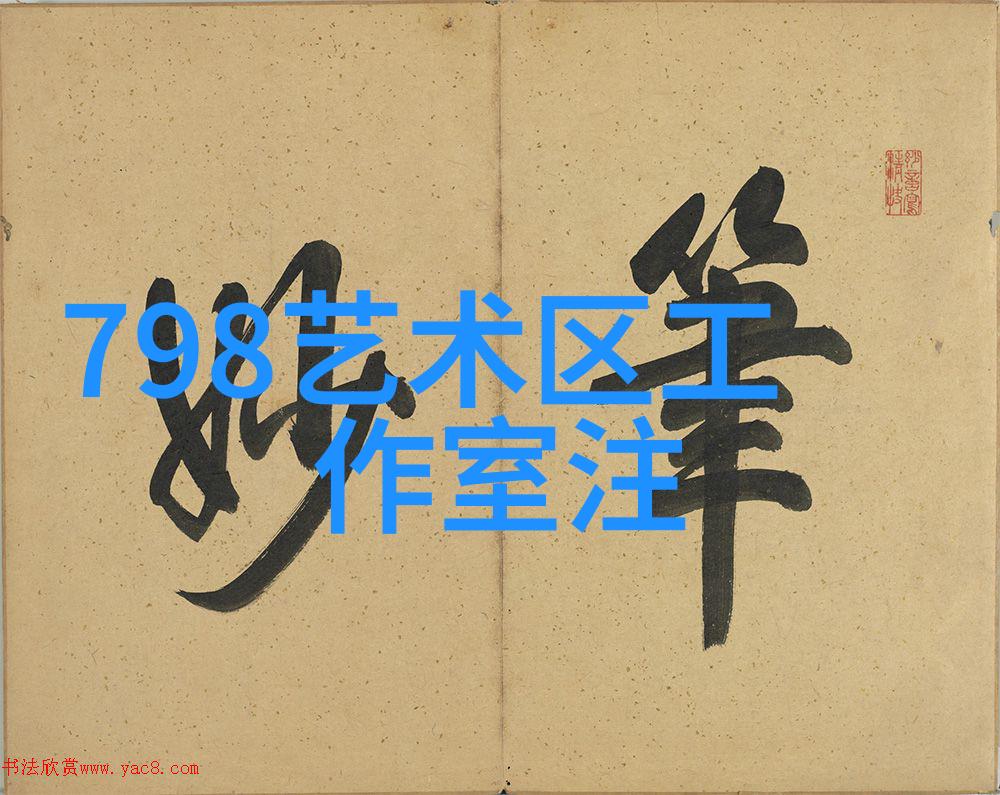 798艺术区工
作室注
筆
妙
书法欣赏www.yac8.com